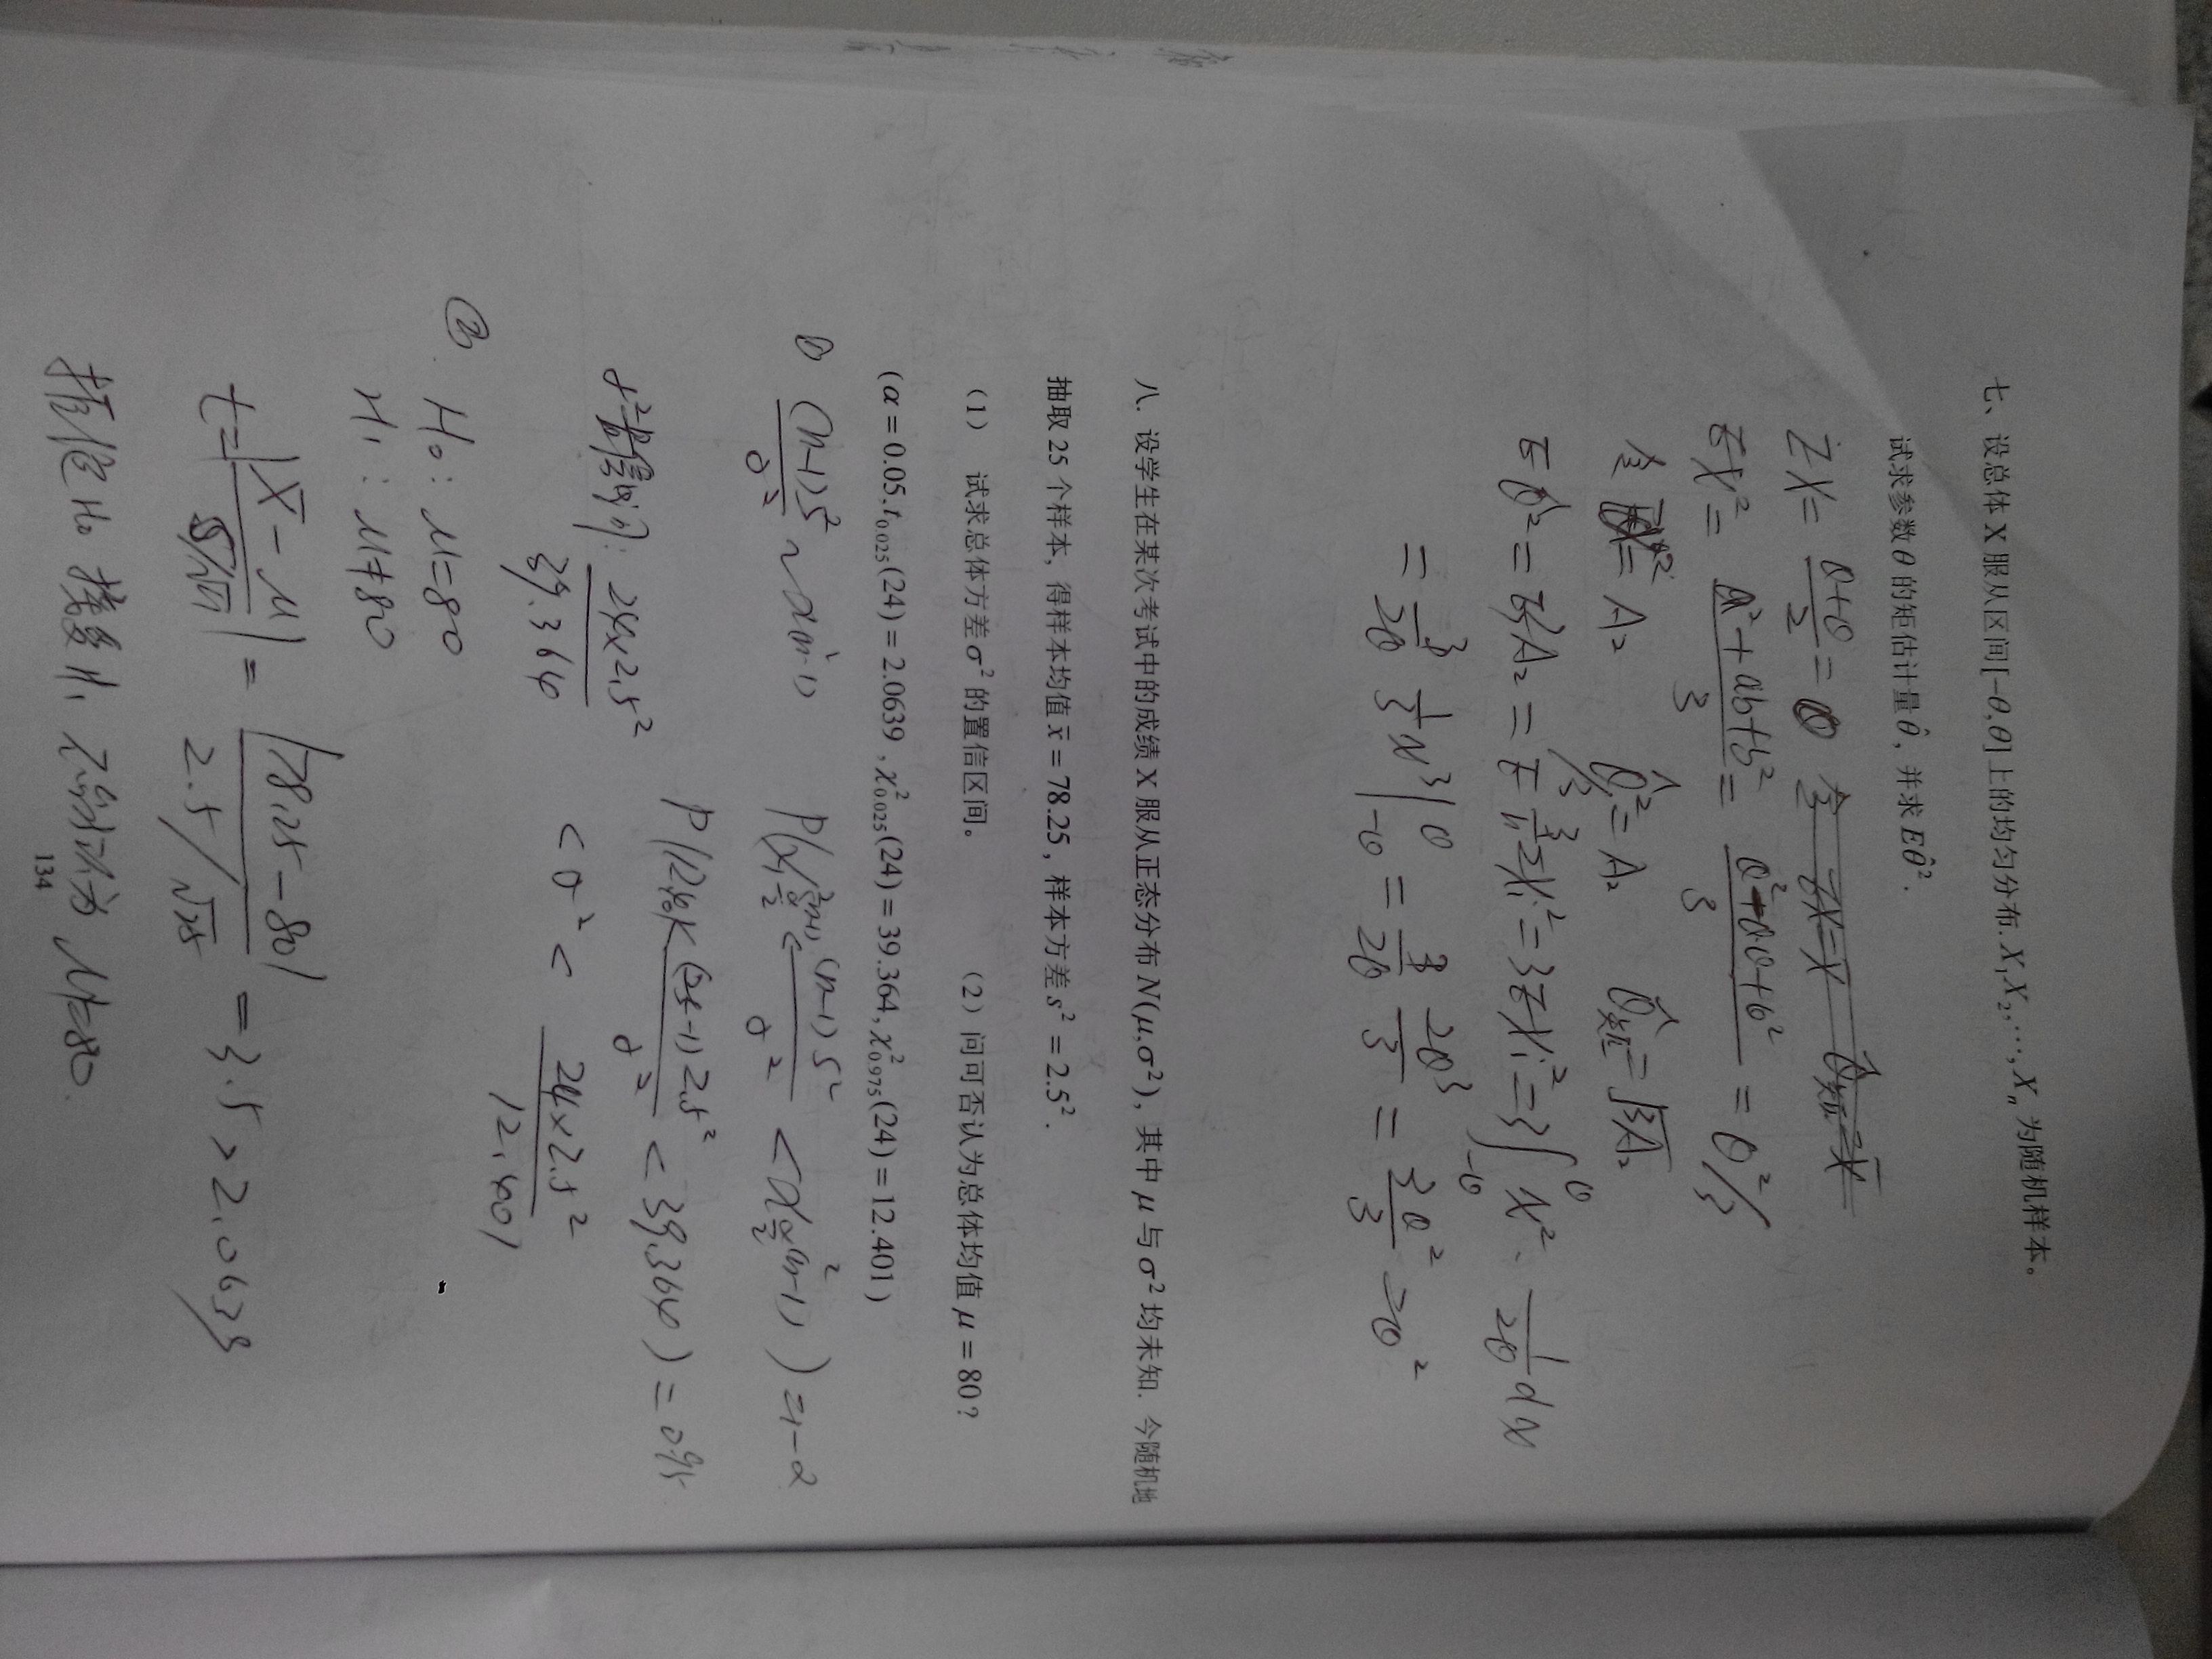 七、设总体 X 服从区间[-θ,θ]上的均匀分布. X₁X₂,⋯,Xₙ 为随机样本。
试求参数θ的矩估计量θ̂, 并求 Eθ̂².
EX² = (a²+ab+b²)/3 = = θ²/3
令 = A₂ θ̂矩 = √3A₂
Eθ̂² = E3A₂ = E 3/n ΣXᵢ² = 3EXᵢ² = 3∫₋θ^θ x² · 1/2θ dx
= 3/2θ 1/3 x³|₋θ^θ = 3/2θ 2θ³/3 = 3θ²/3 = θ²
八. 设学生在某次考试中的成绩 X 服从正态分布 N(μ,σ²), 其中 μ 与 σ² 均未知. 今随机地
抽取 25 个样本, 得样本均值 x̄ = 78.25, 样本方差 s² = 2.5².
(1) 试求总体方差 σ² 的置信区间。 (2) 问可否认为总体均值 μ = 80?
(α = 0.05, t₀.₀₂₅(24) = 2.0639, χ²₀.₀₂₅(24) = 39.364, χ²₀.₉₇₅(24) = 12.401)
① (n-1)S²/σ² ~ χ²(n-1) (n-1)S²/σ² < χ²α/2(n-1) ) = 1-α
(25-1)2.5²/σ² < 39.364 ) = 0.95
σ²的置信区间: 24×2.5²/39.364 < σ² < 24×2.5²/12.401
② H₀: μ=80
H₁: μ≠80
t = |X̄-μ / S/√n| = |78.25-80| / 2.5/√25 = 3.5 > 2.0639
拒绝 H₀ 接受 H₁ 不可以认为 μ=80.
134